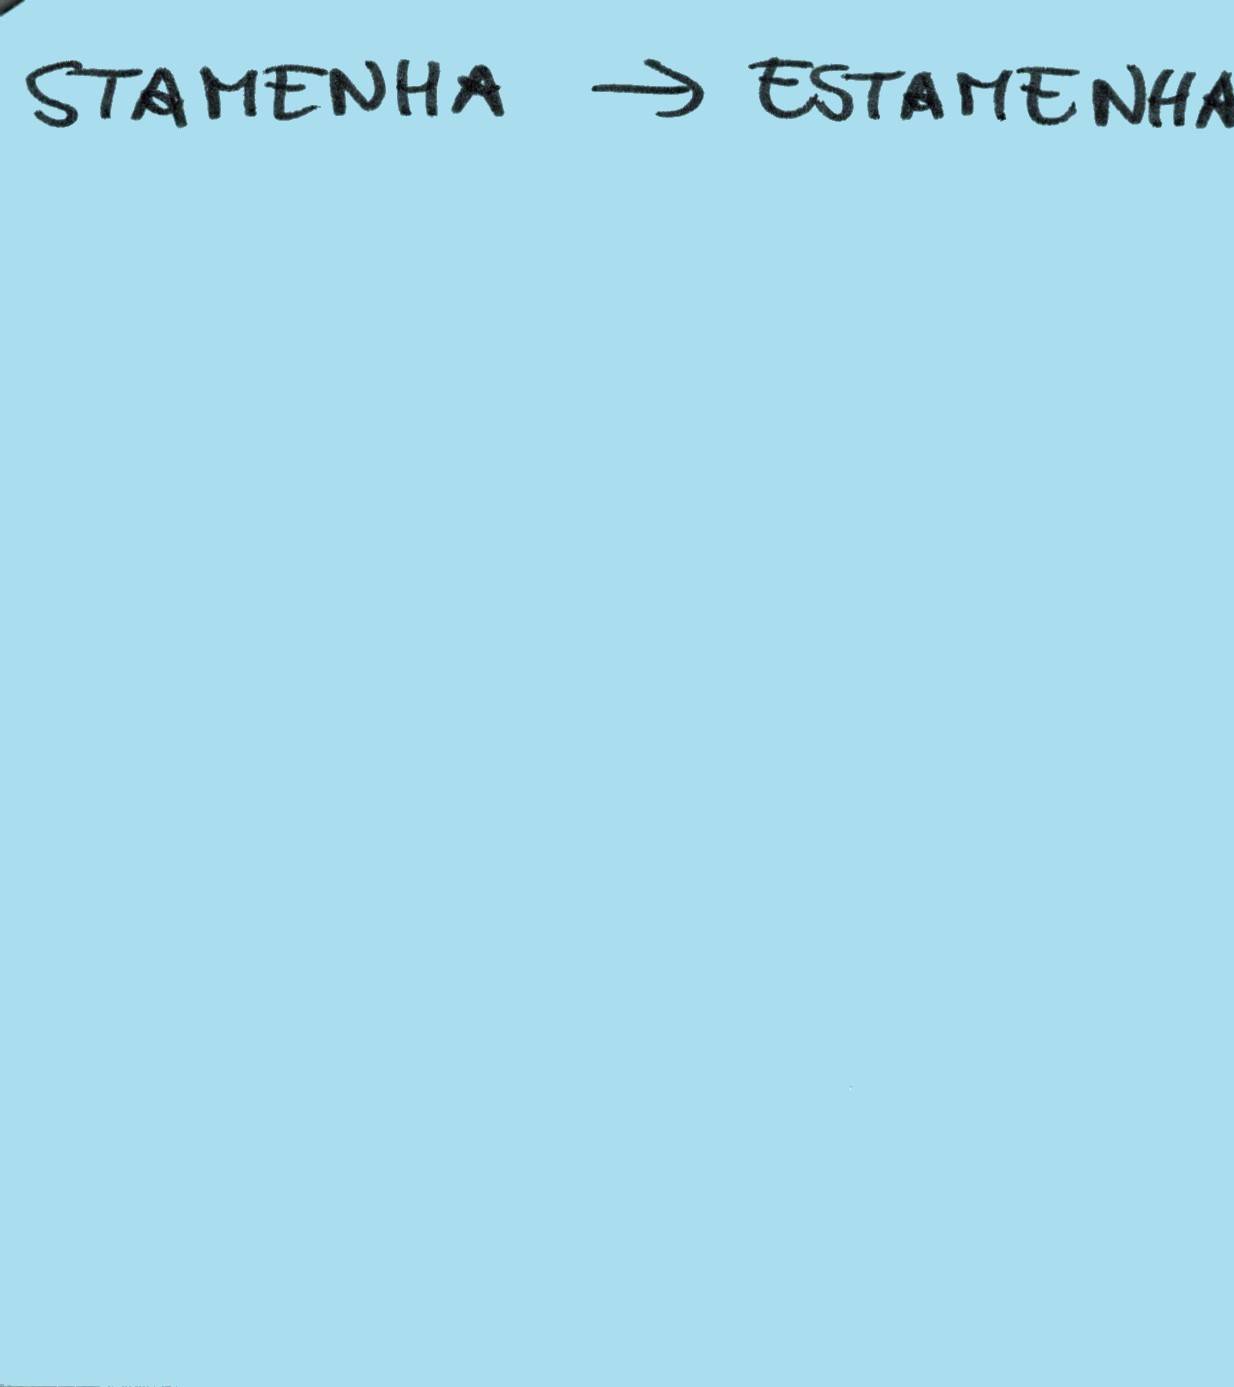 STAMENHA → ESTAMENHA